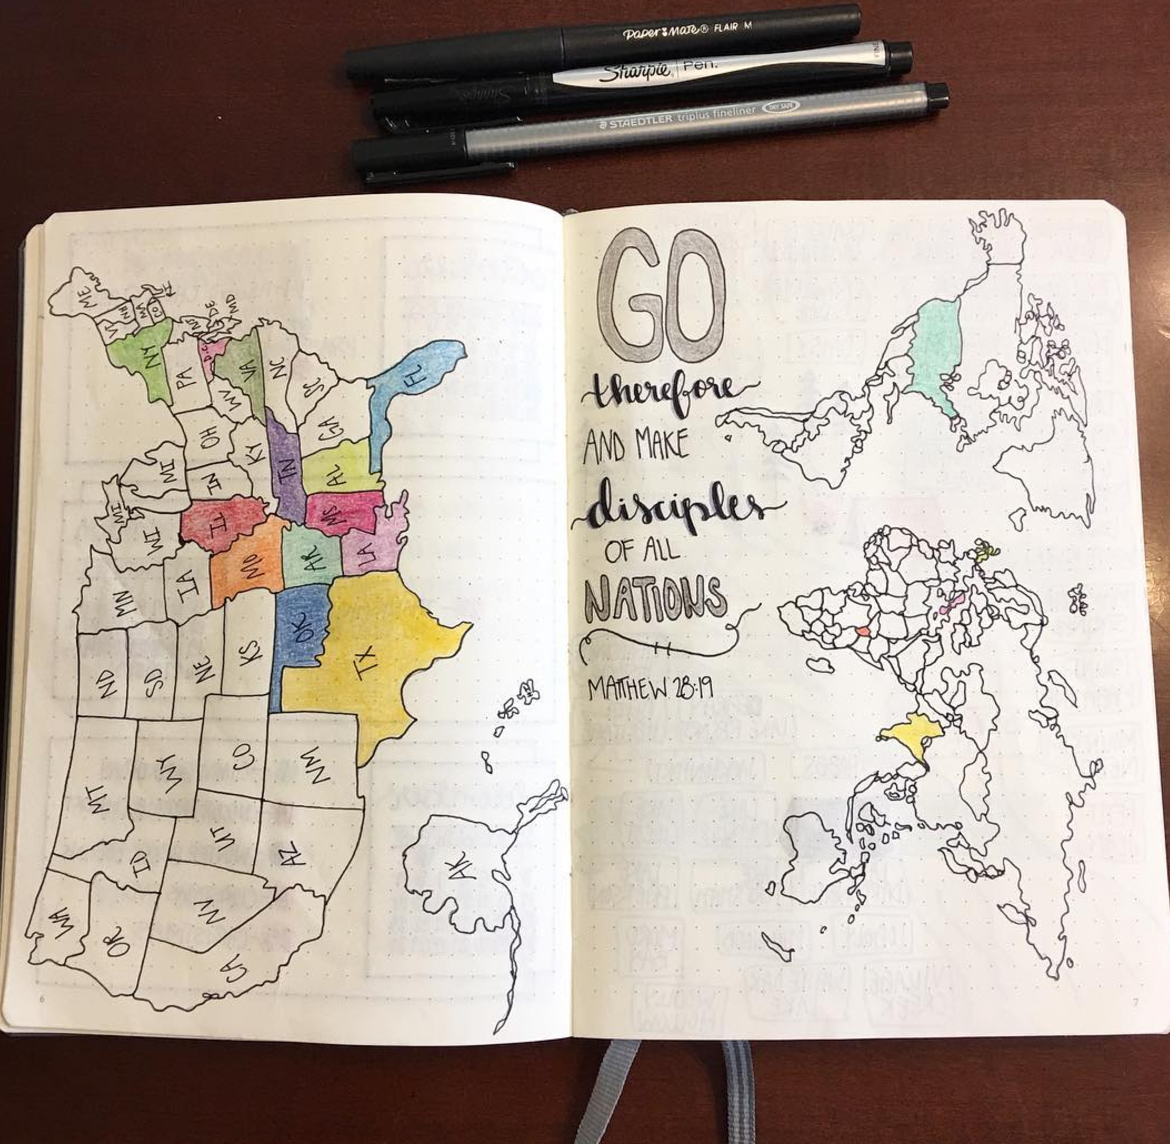 Paper Mate® FLAIR M
Sharpie Pen. FINE
STAEDTLER triplus fineliner DRY SAFE
ME
VT
NH
MA
DE
MD
NY
PA
DC
VA
NC
SC
FL
WV
GA
OH
KY
TN
AL
MI
IN
MI
WI
IL
MS
MO
AR
LA
MN
IA
OK
TX
ND
SD
NE
KS
MT
WY
CO
NM
ID
UT
AZ
WA
OR
NV
CA
AK
6
GO
therefore
AND MAKE
disciples
OF ALL
NATIONS
MATTHEW 28:19
7